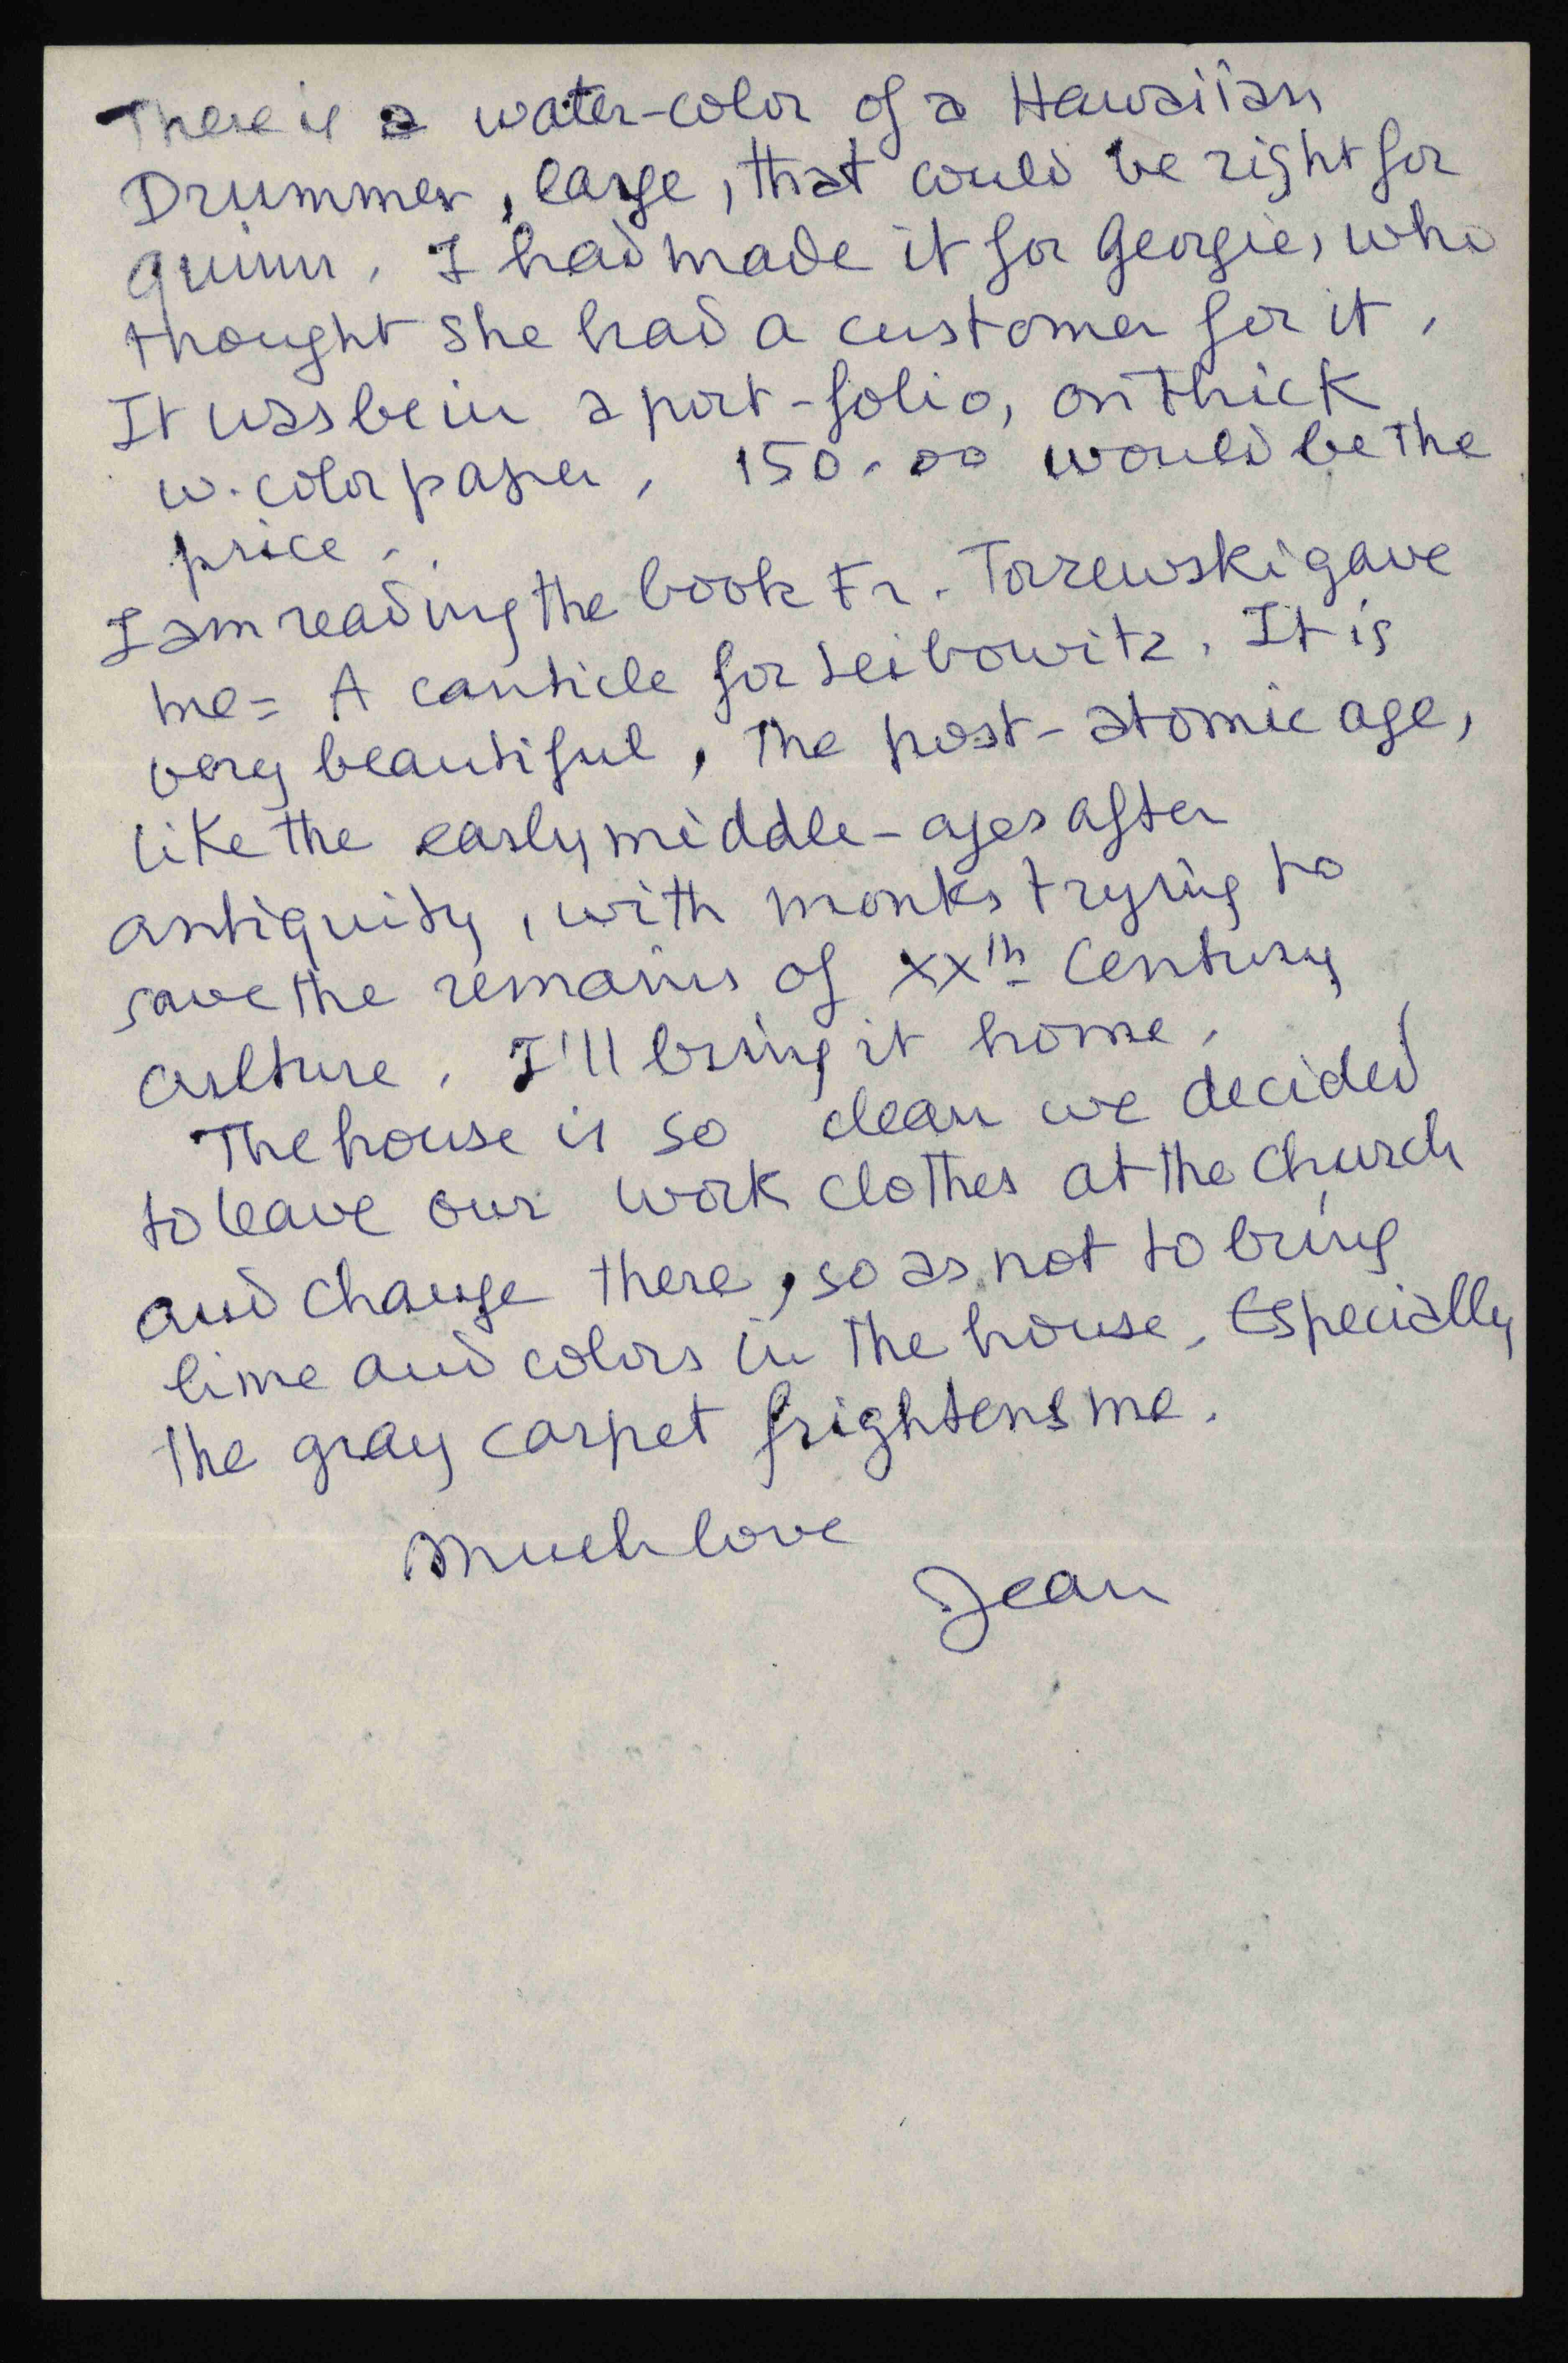 There is a water-color of a Hawaiian
Drummer, large, that could be right for
Quinn. I had made it for Georgie, who
thought she had a customer for it.
It was be in a port-folio, on thick
w.color paper, 150.00 would be the
price.
I am reading the book Fr. Torrewski gave
me = A canticle for Leibowitz. It is
very beautiful, the post-atomic age,
like the early middle-ages after
antiquity, with monks trying to
save the remains of XXth Century
culture. I'll bring it home.
The house is so clean we decided
to leave our work clothes at the church
and change there, so as not to bring
lime and colors in the house. Especially
the gray carpet frightens me.
Much love
Jean